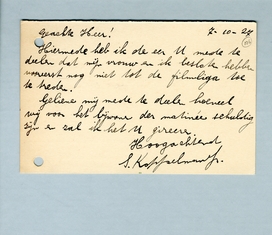 Geachte Heer! 7-10-27
Hiermede heb ik de eer U mede te
deelen dat mijn vrouw en ik besloten hebben
voorerst nog niet tot de filmliga toe
te treden.
Gelieve mij mede te deelen hoeveel
wij voor het bijwonen der matinée schuldig
zijn en zal ik het U gireeren.
Hoogachtend
S. Koppelman